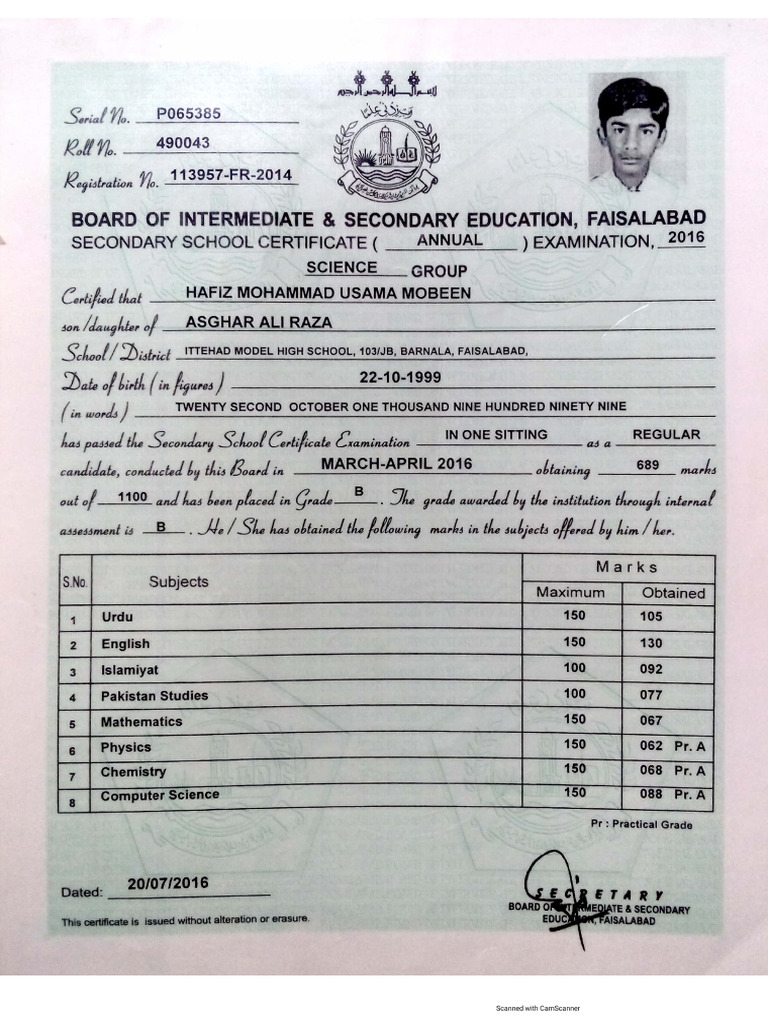 بسم الله الرحمن الرحيم
Serial No. P065385
Roll No. 490043
Registration No. 113957-FR-2014
BOARD OF INTERMEDIATE & SECONDARY EDUCATION, FAISALABAD
SECONDARY SCHOOL CERTIFICATE ( ANNUAL ) EXAMINATION, 2016
SCIENCE GROUP
Certified that HAFIZ MOHAMMAD USAMA MOBEEN
son/daughter of ASGHAR ALI RAZA
School/District ITTEHAD MODEL HIGH SCHOOL, 103/JB, BARNALA, FAISALABAD,
Date of birth (in figures) 22-10-1999
(in words) TWENTY SECOND OCTOBER ONE THOUSAND NINE HUNDRED NINETY NINE
has passed the Secondary School Certificate Examination IN ONE SITTING as a REGULAR
candidate, conducted by this Board in MARCH-APRIL 2016 obtaining 689 marks
out of 1100 and has been placed in Grade B . The grade awarded by the institution through internal
assessment is B . He/She has obtained the following marks in the subjects offered by him/her.
S.No. Subjects Marks
Maximum Obtained
1 Urdu 150 105
2 English 150 130
3 Islamiyat 100 092
4 Pakistan Studies 100 077
5 Mathematics 150 067
6 Physics 150 062 Pr. A
7 Chemistry 150 068 Pr. A
8 Computer Science 150 088 Pr. A
Pr : Practical Grade
Dated: 20/07/2016
SECRETARY
BOARD OF INTERMEDIATE & SECONDARY
EDUCATION, FAISALABAD
This certificate is issued without alteration or erasure.
Scanned with CamScanner